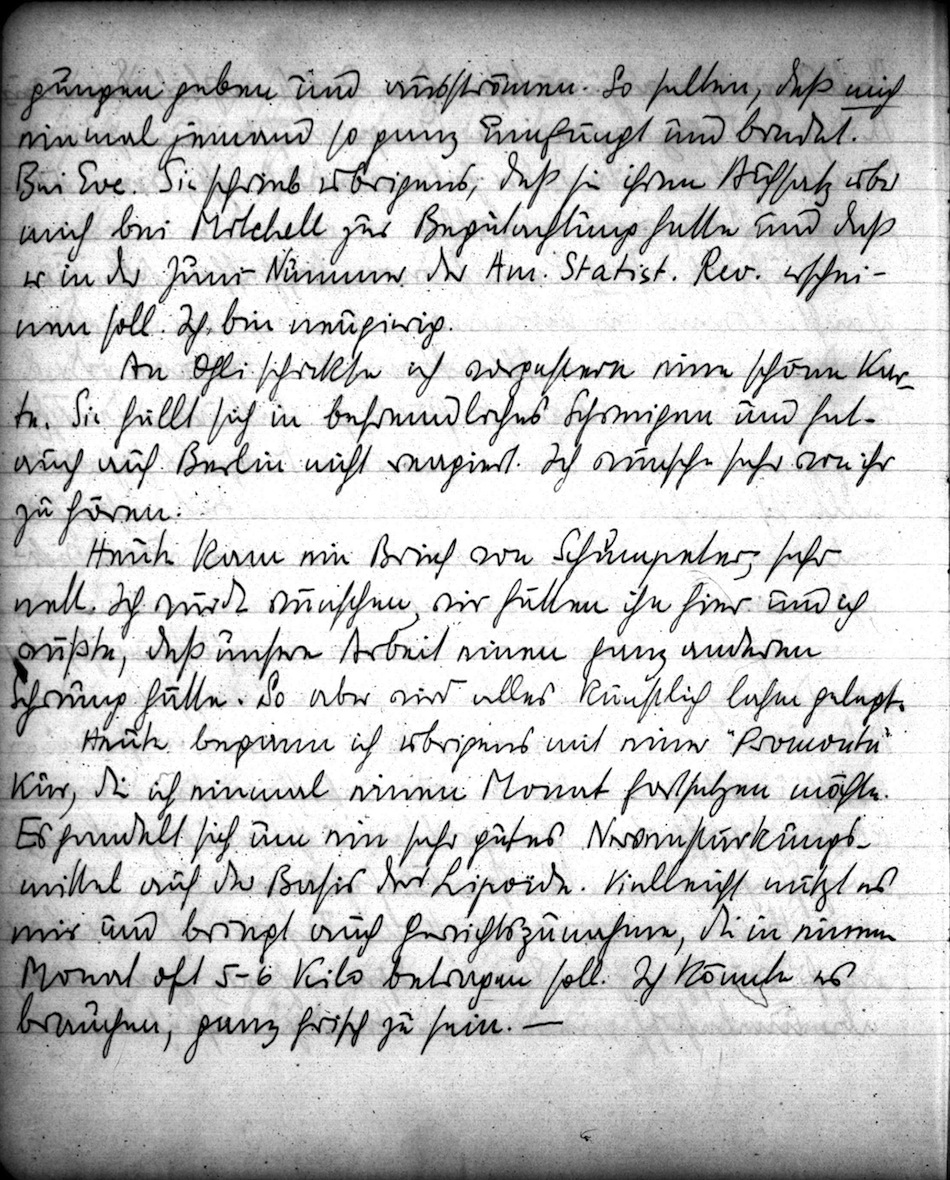 gungen geben und ausströmen. So selten, daß mich
einmal jemand so ganz umfängt und bindet.
Bei Eve. Sie schrieb übrigens, daß sie ihren Aufsatz über
mich bei Mitchell zur Begutachtung hatte und daß
er in der Juni-Nummer der Am. Statist. Rev. erschei-
nen soll. Ich bin neugierig.
An Ohli schickte ich vorgestern eine schöne Kar-
te. Sie hüllt sich in befremdliches Schweigen und hat
auch auf Berlin nicht reagiert. Ich wünsche sehr von ihr
zu hören.
Heute kam ein Brief von Schumpeter, sehr
nett. Ich würde wünschen, wir hätten ihn hier und ich
wüßte, daß unsere Arbeit einen ganz anderen
Schwung hätte. So aber wird alles künstlich lahm gelegt.
Heute begann ich übrigens mit einer "Promonta"
Kur, die ich einmal einen Monat fortsetzen möchte.
Es handelt sich um ein sehr gutes Nervenstärkungs-
mittel auf der Basis der Lipoide. Vielleicht nützt es
mir und bringt auch Gewichtszunahme, die in einem
Monat oft 5-6 Kilo betragen soll. Ich könnte es
brauchen, ganz frisch zu sein. —